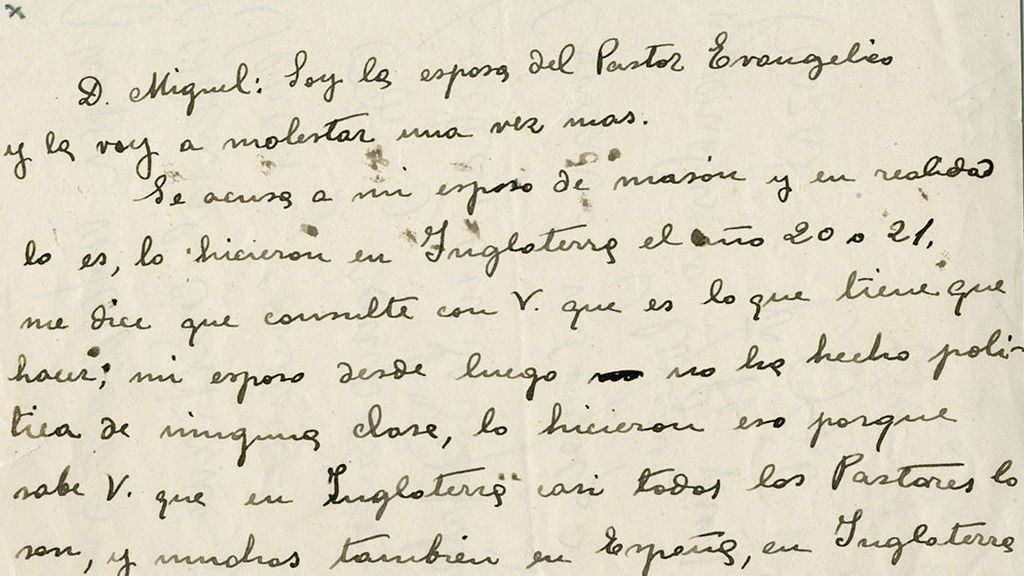 D. Miguel: Soy la esposa del Pastor Evangelico
y la voy a molestar una vez mas.
Se acusa a mi esposo de masón y en realidad
lo es, lo hicieron en Inglaterra el año 20 o 21,
me dice que consulte con V. que es lo que tiene que
hacer; mi esposo desde luego no ha hecho poli-
tica de ninguna clase, lo hicieron eso porque
sabe V. que en Inglaterra casi todos los Pastores lo
son, y muchos también en España, en Inglaterra